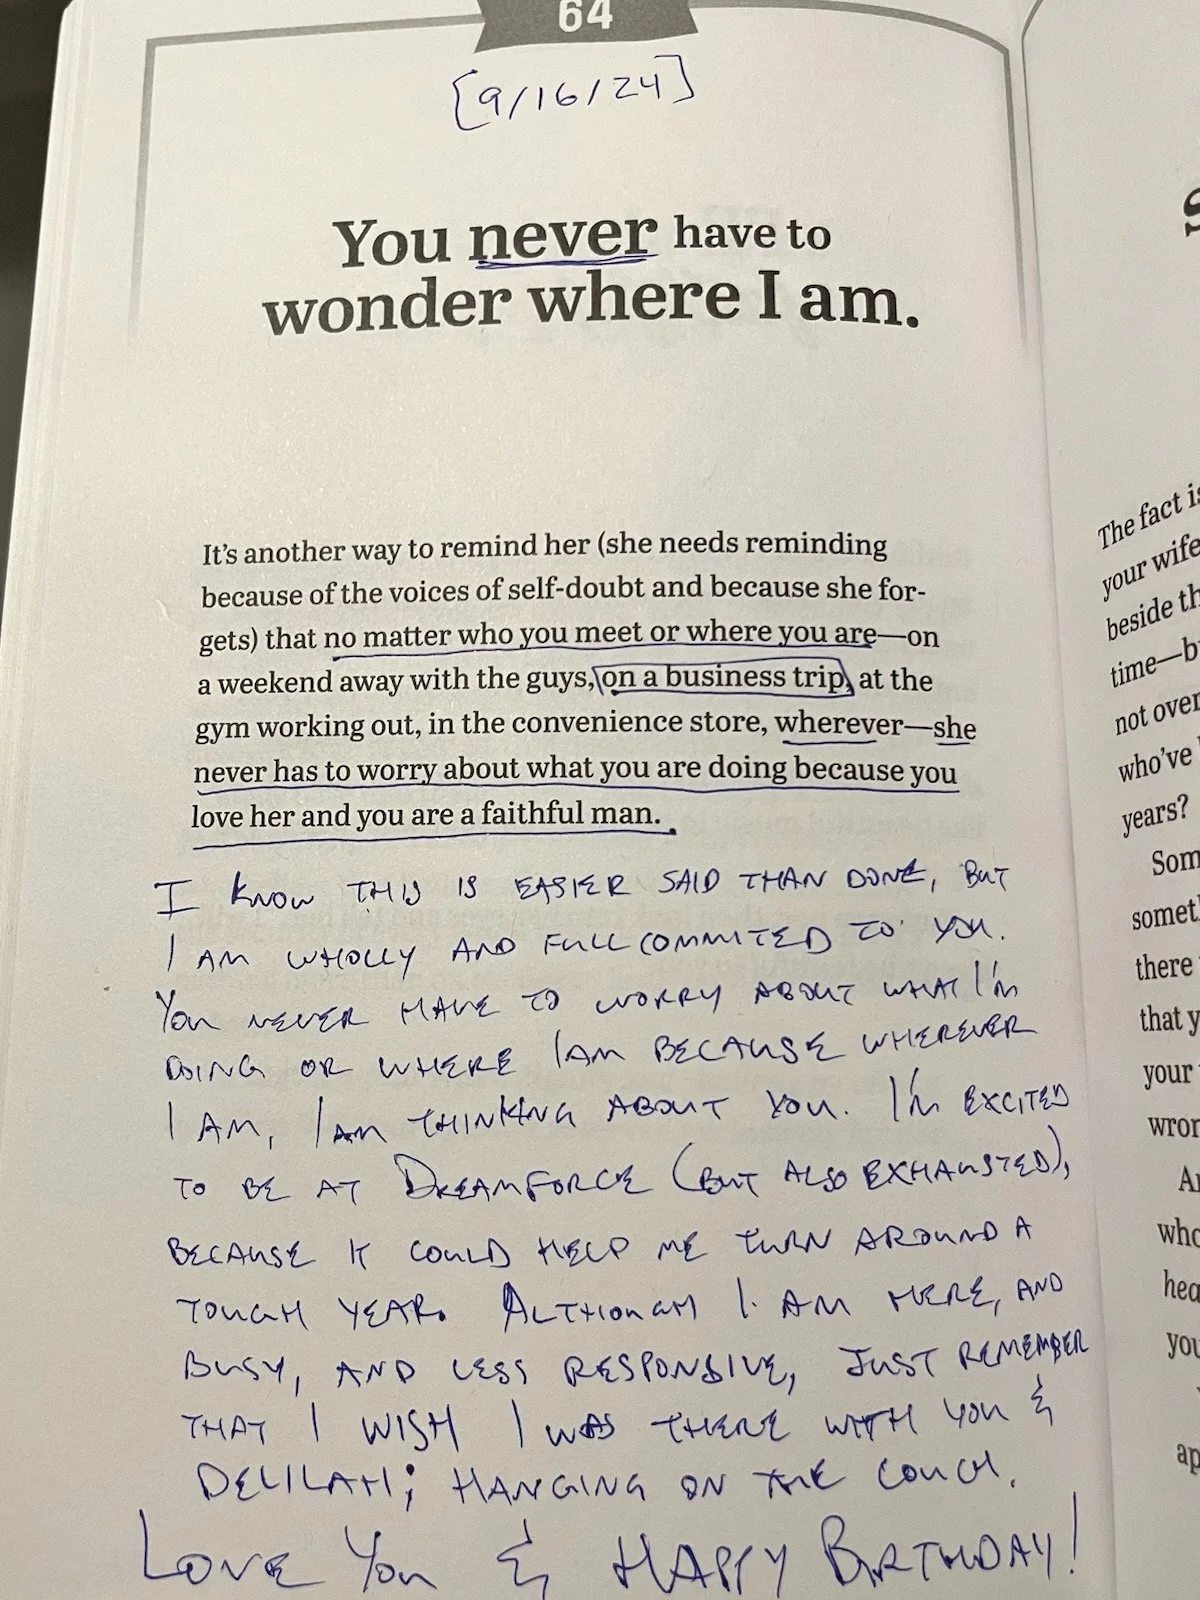 64
[9/16/24]
You never have to
wonder where I am.
It's another way to remind her (she needs reminding
because of the voices of self-doubt and because she for-
gets) that no matter who you meet or where you are—on
a weekend away with the guys, on a business trip, at the
gym working out, in the convenience store, wherever—she
never has to worry about what you are doing because you
love her and you are a faithful man.
I KNOW THIS IS EASIER SAID THAN DONE, BUT
I AM WHOLLY AND FULL COMMITED TO YOU.
YOU NEVER HAVE TO WORRY ABOUT WHAT I'M
DOING OR WHERE I AM BECAUSE WHEREVER
I AM, I AM THINKING ABOUT YOU. I'M EXCITED
TO BE AT DREAMFORCE (BUT ALSO EXHAUSTED),
BECAUSE IT COULD HELP ME TURN AROUND A
TOUGH YEAR. ALTHOUGH I AM HERE, AND
BUSY, AND LESS RESPONSIVE, JUST REMEMBER
THAT I WISH I WAS THERE WITH YOU &
DELILAH; HANGING ON THE COUCH.
LOVE YOU & HAPPY BIRTHDAY!
The fact is
your wife
beside th
time—b
not over
who've
years?
Som
somet
there
that y
your
wror
A
who
hea
you
ap